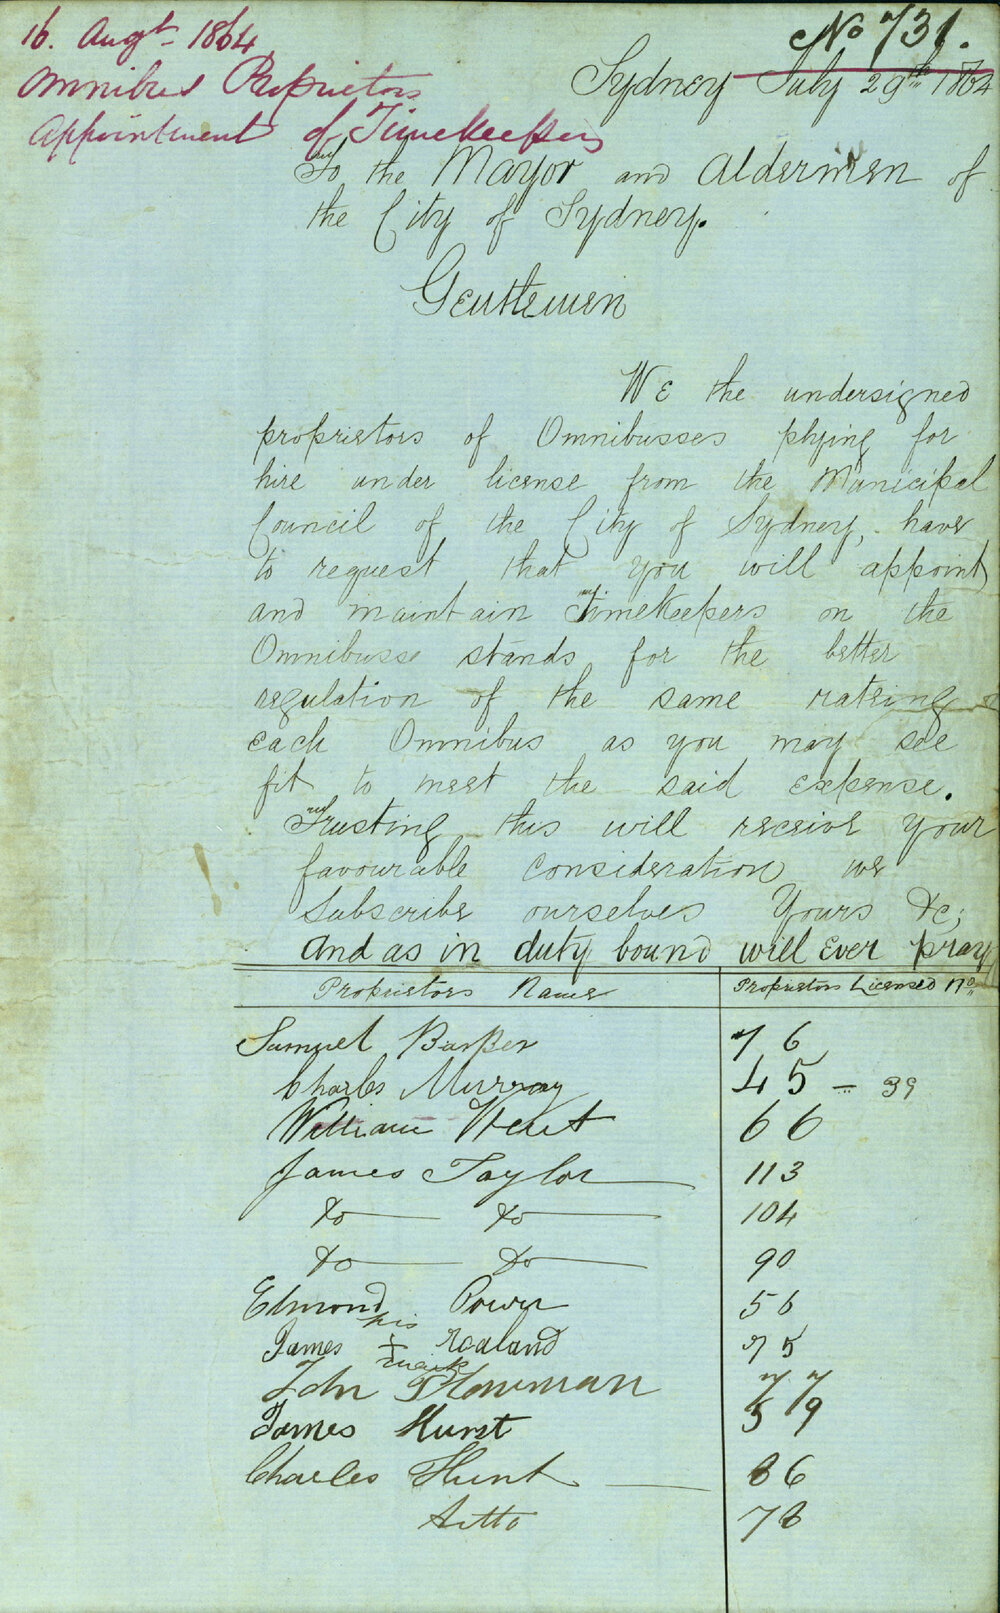 16. Augt 1864
Omnibus Proprietors
Appointment of Timekeepers
No 731.
Sydney July 29th 1864
To the Mayor and Aldermen of
the City of Sydney.
Gentlemen
We the undersigned
proprietors of Omnibusses plying for
hire under license from the Municipal
Council of the City of Sydney, have
to request that you will appoint
and maintain Timekeepers on the
Omnibusse stands for the better
regulation of the same rateing
each Omnibus as you may see
fit to meet the said expense.
Trusting this will receive your
favourable consideration we
Subscribe ourselves Yours &c;
And as in duty bound will Ever pray
Proprietors Name Proprietors Licensed No
Samuel Barber 76
Charles Murray 45 - 39
William Hunt 66
James Taylor 113
Do Do 104
Do Do 90
Edmond Power 56
his
James X Roaland 75
mark
John Plowman 77
James Hurst 59
Charles Hunt 86
ditto 78